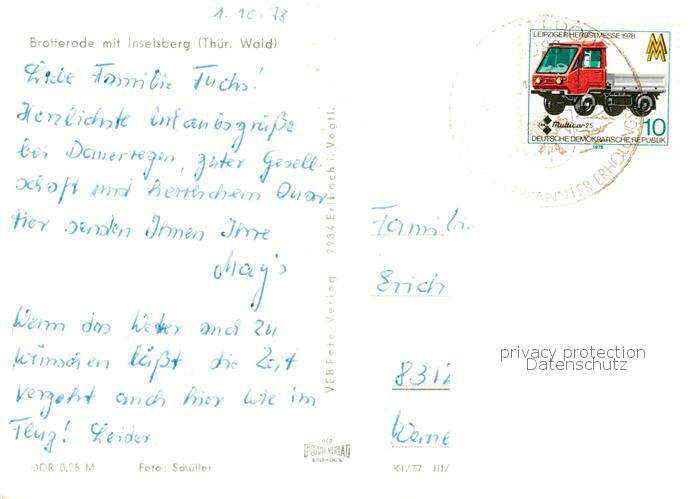 1. 10. 78
Brotterode mit Inselsberg (Thür. Wald)
Liebe Familie Fuchs!
Herzlichste Urlaubsgrüße
bei Dauerregen, guter Gesell-
schaft und herrlichem Quar-
tier senden Ihnen Ihre
May's
Wenn das Wetter auch zu
wünschen läßt, die Zeit
vergeht auch hier wie im
Flug! Leider.
DDR 0,25 M
Foto: Schüller
VEB Foto-Verlag 9934 Erlbach i. Vogtl.
VEB
FOTO-VERLAG
ERLBACH
K1/77 III/
LEIPZIGER HERBSTMESSE 1978
Multicar 25
10
DEUTSCHE DEMOKRATISCHE REPUBLIK
1978
ERKANNTER ERHOLUNGS
Familie
Erich
8312
privacy protection
Datenschutz